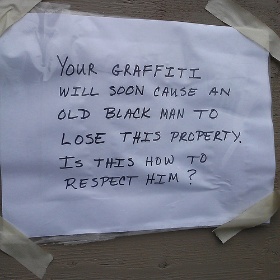 YOUR GRAFFITI
WILL SOON CAUSE AN
OLD BLACK MAN TO
LOSE THIS PROPERTY.
IS THIS HOW TO
RESPECT HIM?